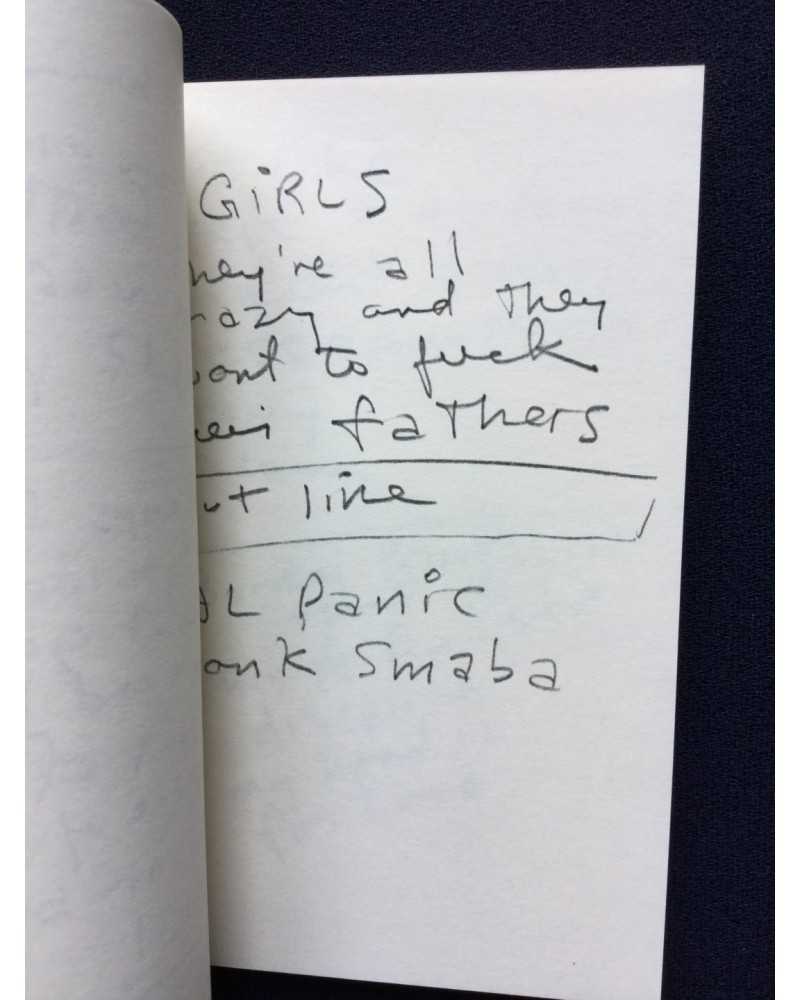 GiRLS
hey're all
razy and they
ant to fuck
heir fathers
ut line
AL Panic
onk Smaba